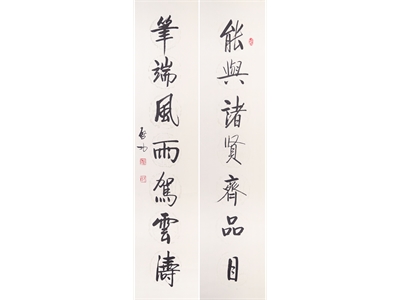 能與諸賢齊品目
筆端風雨駕雲濤
啟功